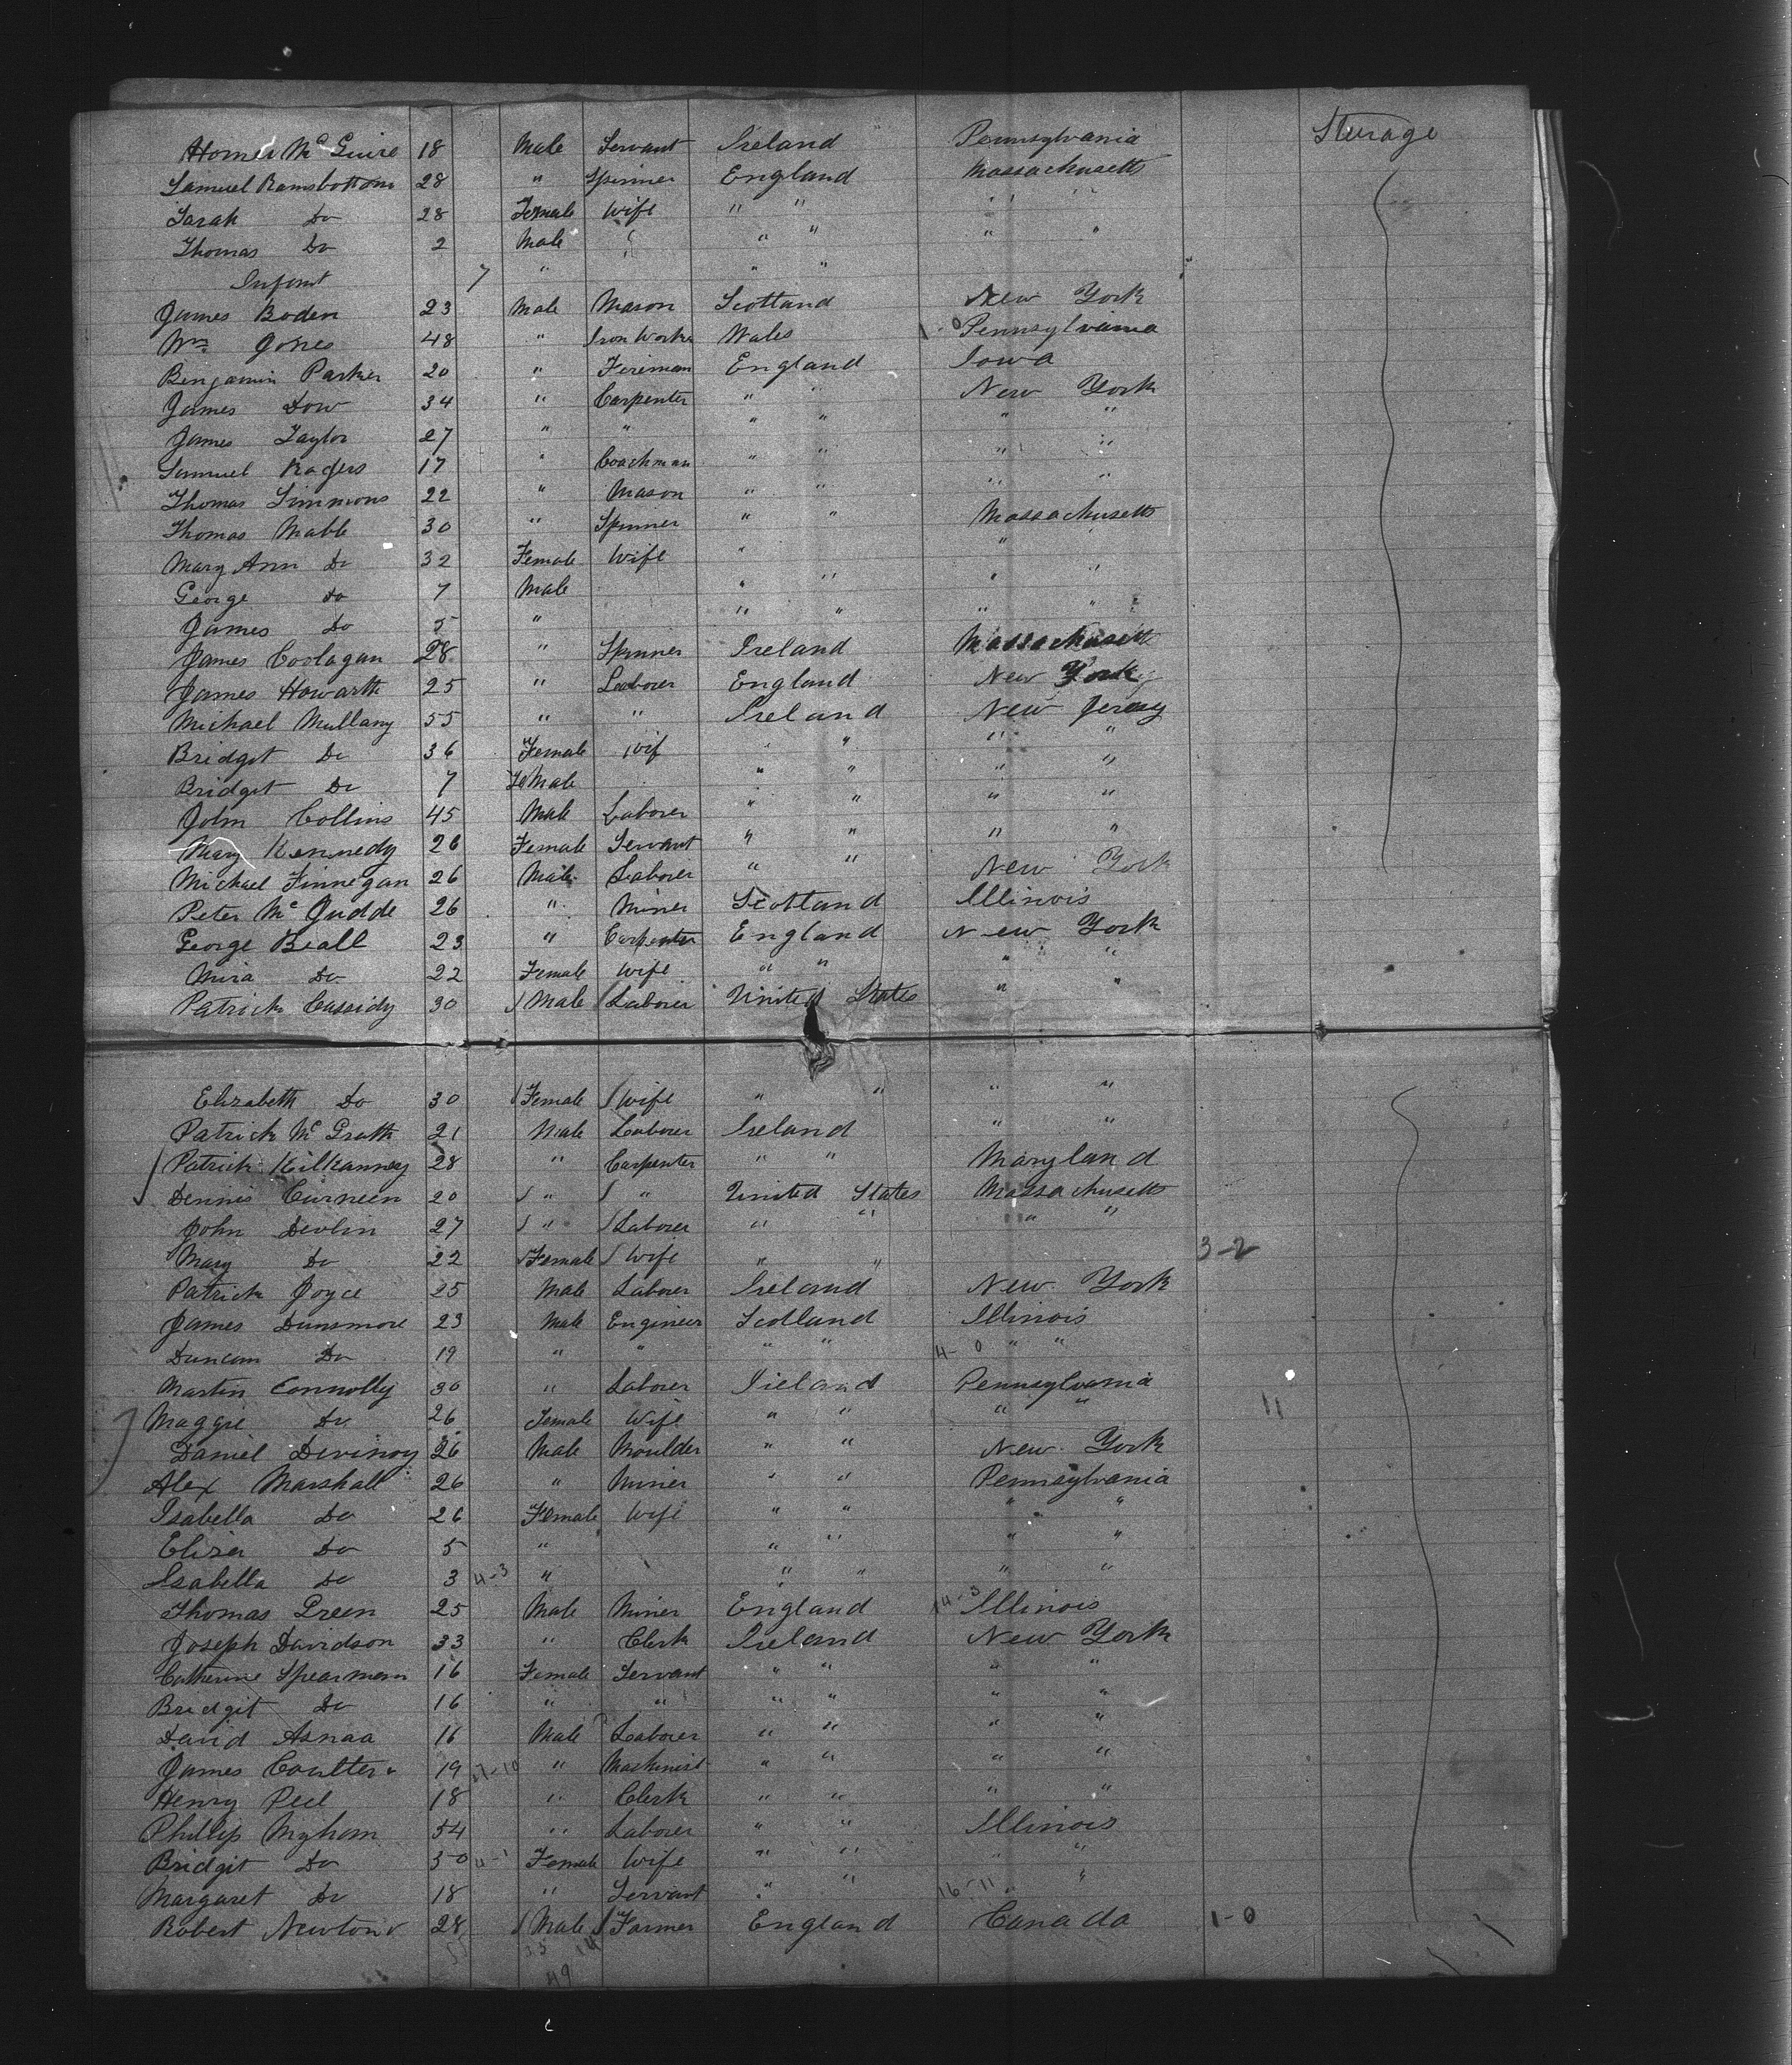 Homer McGuire 18 Male Servant Ireland Pennsylvania Sturage
Samuel Ramsbottom 28 " Spinner England Massachusetts
Sarah Do 28 Female Wife " " " "
Thomas Do 2 Male " " " "
Infant 7 " " "
James Boden 23 Male Mason Scotland New York
Wm Jones 48 " Iron Worker Wales 1-0 Pennsylvania
Benjamin Parker 20 " Fireman England Iowa
James Dow 34 " Carpenter " " New York
James Taylor 27 " " " " " "
Samuel Rogers 17 " Coachman " " " "
Thomas Simmons 22 " Mason " " " "
Thomas Mabb 30 " Spinner " " Massachusetts
Mary Ann Do 32 Female Wife " "
George Do 7 Male " " " "
James Do 5 " " " " "
James Coolagan 28 " Spinner Ireland Massachusett
James Howarth 25 " Laborer England New York
Michael Mullany 55 " " Ireland New Jersey
Bridget Do 36 Female Wif " " " "
Bridget Do 7 FeMale " " " "
John Collins 45 Male Laborer " " " "
Mary Kennedy 26 Female Servant " " " "
Michael Finnegan 26 Male Laborer " " New York
Peter Mc Judde 26 " Miner Scotland Illinois
George Beall 23 " Carpenter England New York
Mira Do 22 Female Wife " " " "
Patrick Cassidy 30 / Male / Laborer United States " "
Elizabeth Do 30 / Female / Wife " " " "
Patrick McGrath 21 Male Laborer Ireland " "
Patrick Kilkanney 28 " Carpenter " " Maryland
Dennis Curneen 20 / " / " United States Massachusetts
John Devlin 27 / " / Laborer " " " "
Mary Do 22 / Female / Wife " " 3-2
Patrick Joyce 25 Male Laborer Ireland New York
James Dunsmore 23 Male Engineer Scotland Illinois
Duncan Do 19 " " " " 4-0 " "
Martin Connolly 30 " Laborer Ireland Pennsylvania
Maggie Do 26 Female Wife " " " " 11
Daniel Devinoy 26 Male Moulder " " New York
Alex Marshall 26 " Miner " " Pennsylvania
Isabella Do 26 Female Wife " " " "
Eliza Do 5 " " " " "
Isabella Do 3 4-3 " " " " "
Thomas Green 25 Male Miner England 14-3 Illinois
Joseph Davidson 33 " Clerk Ireland New York
Catherine Spearman 16 Female Servant " " " "
Bridgit Do 16 " " " " " "
David Asnaa 16 Male Laborer " " " "
James Coulter 19 17-10 " Machinist " " " "
Henry Peel 18 " Clerk " " " "
Phillip Mghom 54 " Laborer " " Illinois
Bridgit Do 50 4-1 Female Wife " " " "
Margaret Do 18 " Servant " " 16-11 " "
Robert Newton 28 / Male / Farmer England Canada 1-0
35 14
49